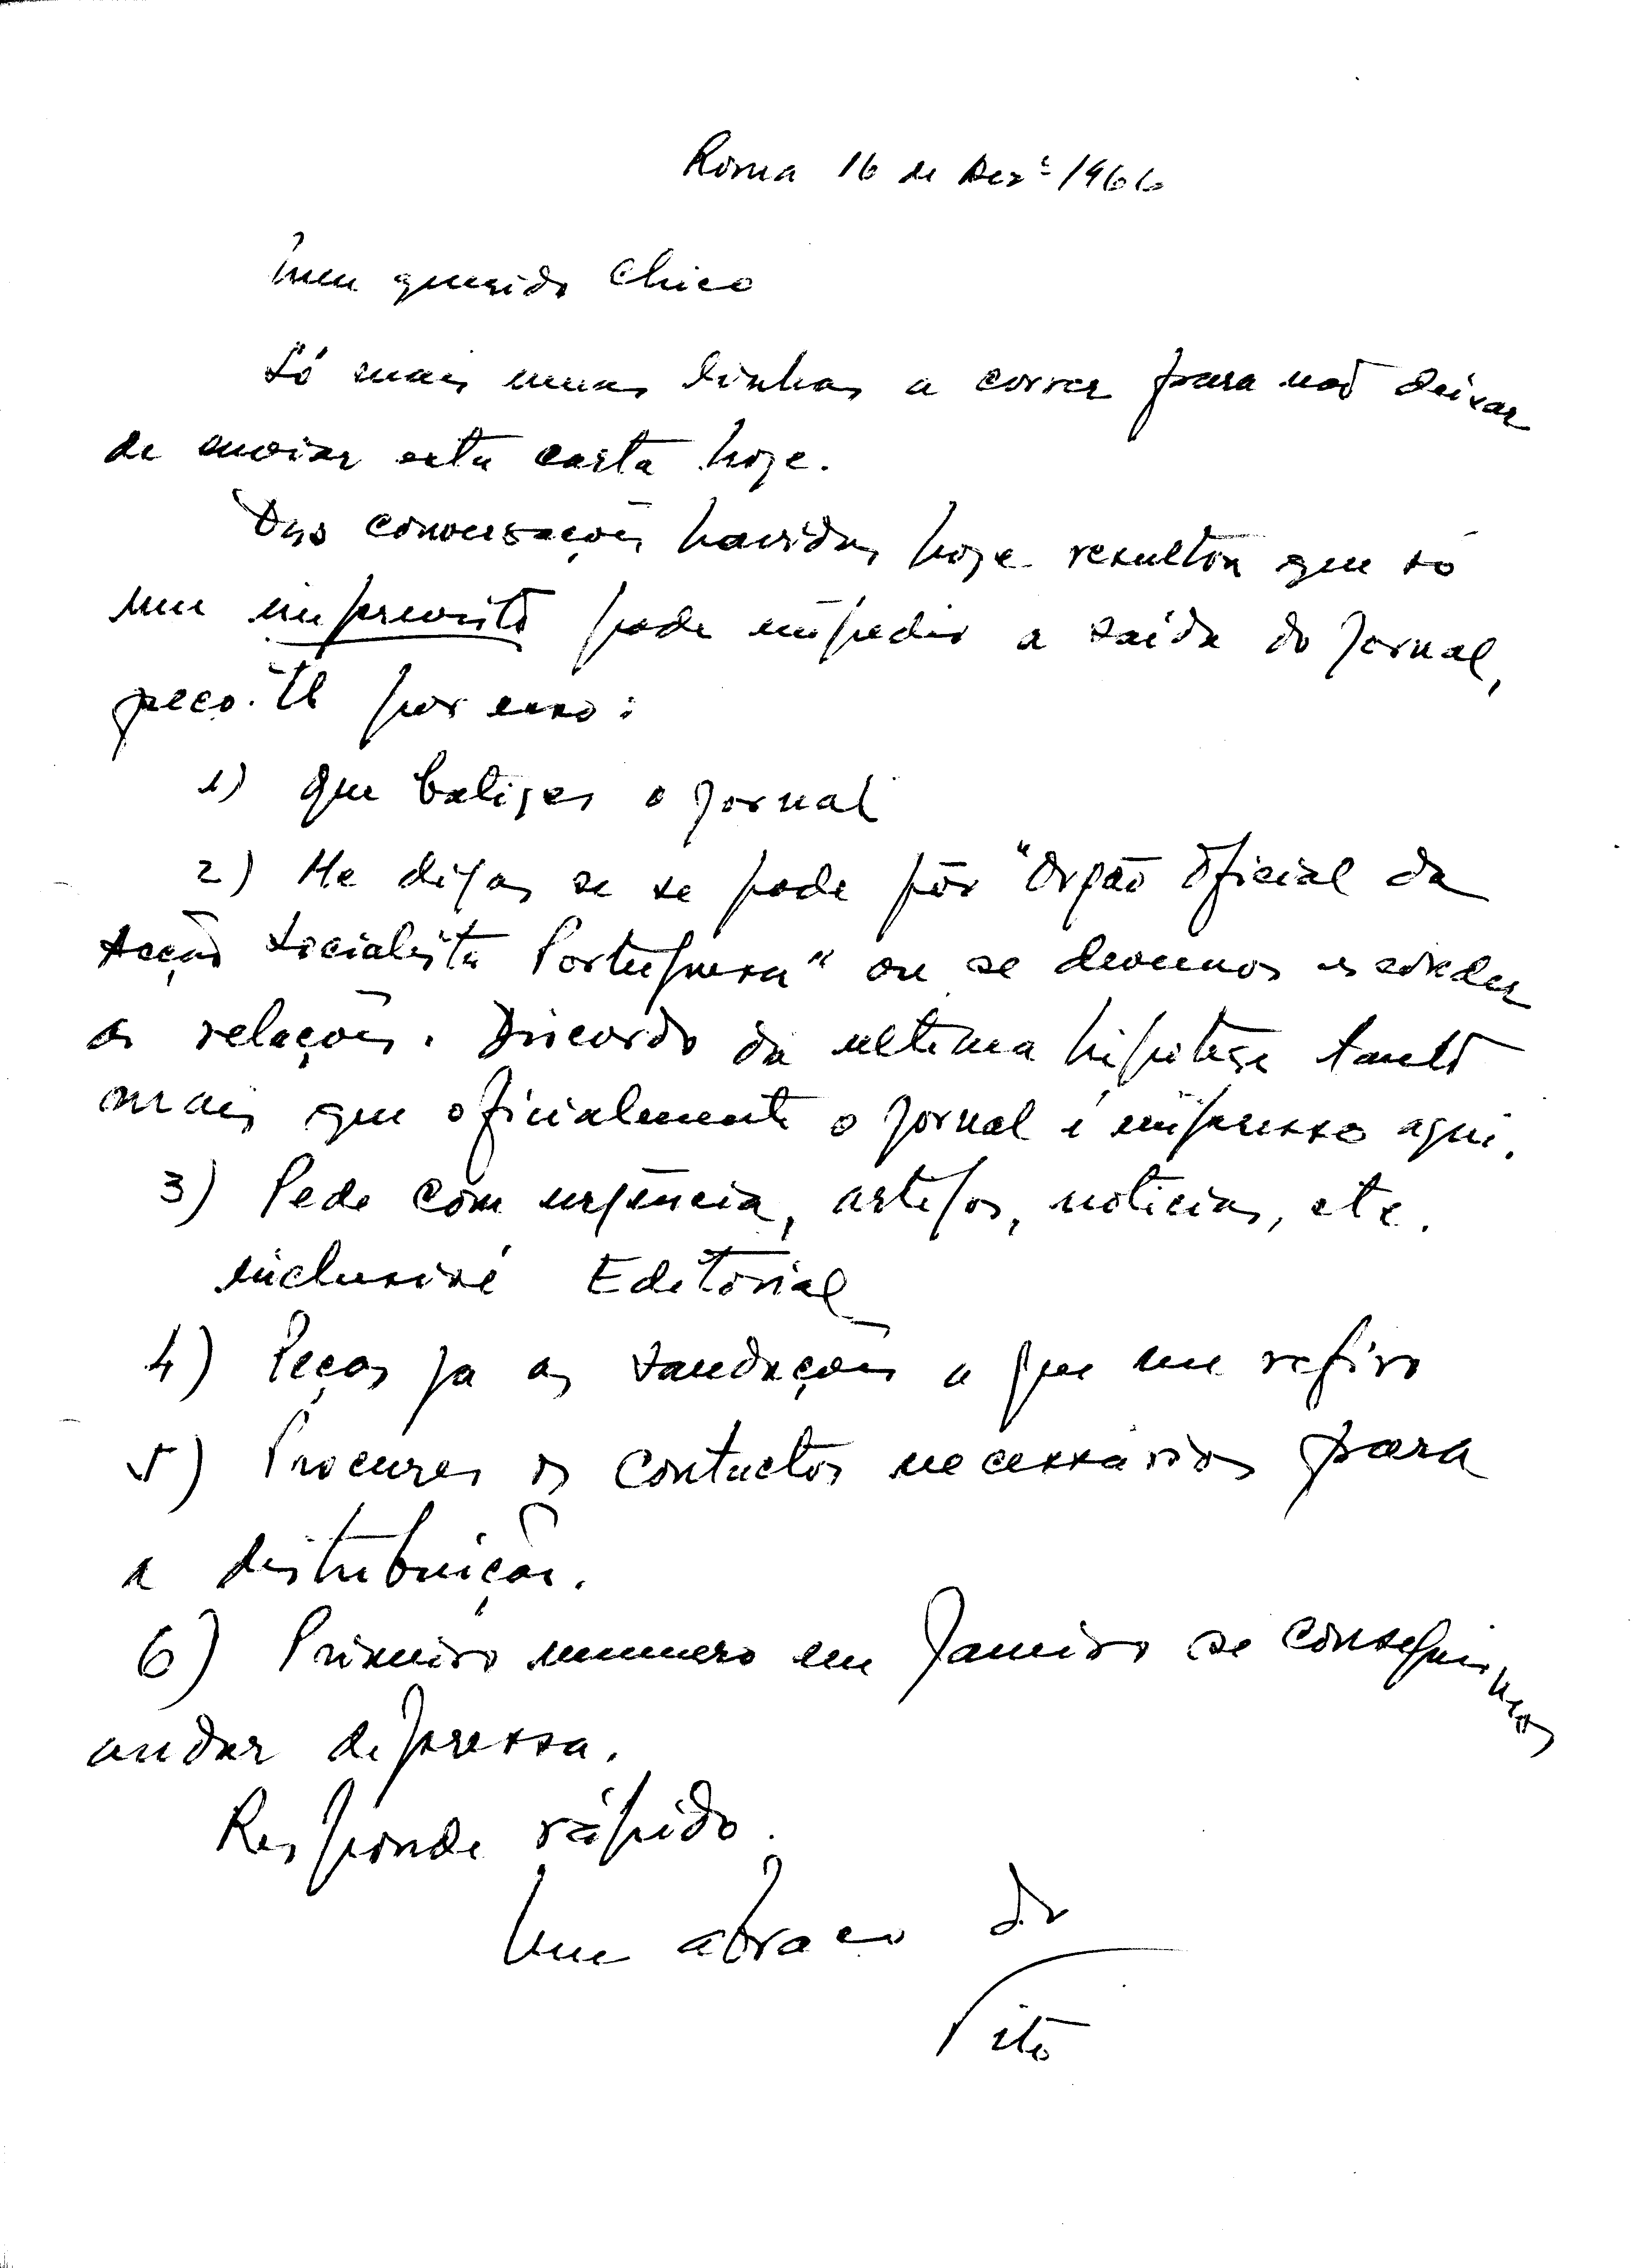 Roma 16 de Dezº 1966
Meu querido Chico
Só mais umas linhas a correr para não deixar
de enviar esta carta hoje.
Das conversações havidas hoje resultou que só
um imprevisto pode impedir a saída do jornal,
peço-te por isso:
1) Que batizes o jornal
2) Me digas se se pode pôr "Orgão Oficial da
Acção Socialista Portuguesa" ou se devemos esconder
as relações. Discordo da ultima hipotese tanto
mais que oficialmente o jornal é impresso aqui.
3) Pede com urgência, artigos, noticias, etc.
inclusivé Editorial
4) Peças ja as saudações a que me refiro
5) Procures os contactos necessários para
a distribuição.
6) Primeiro numero em Janeiro se conseguirmos
andar depressa.
Responde rápido.
Um abraço do
Tito